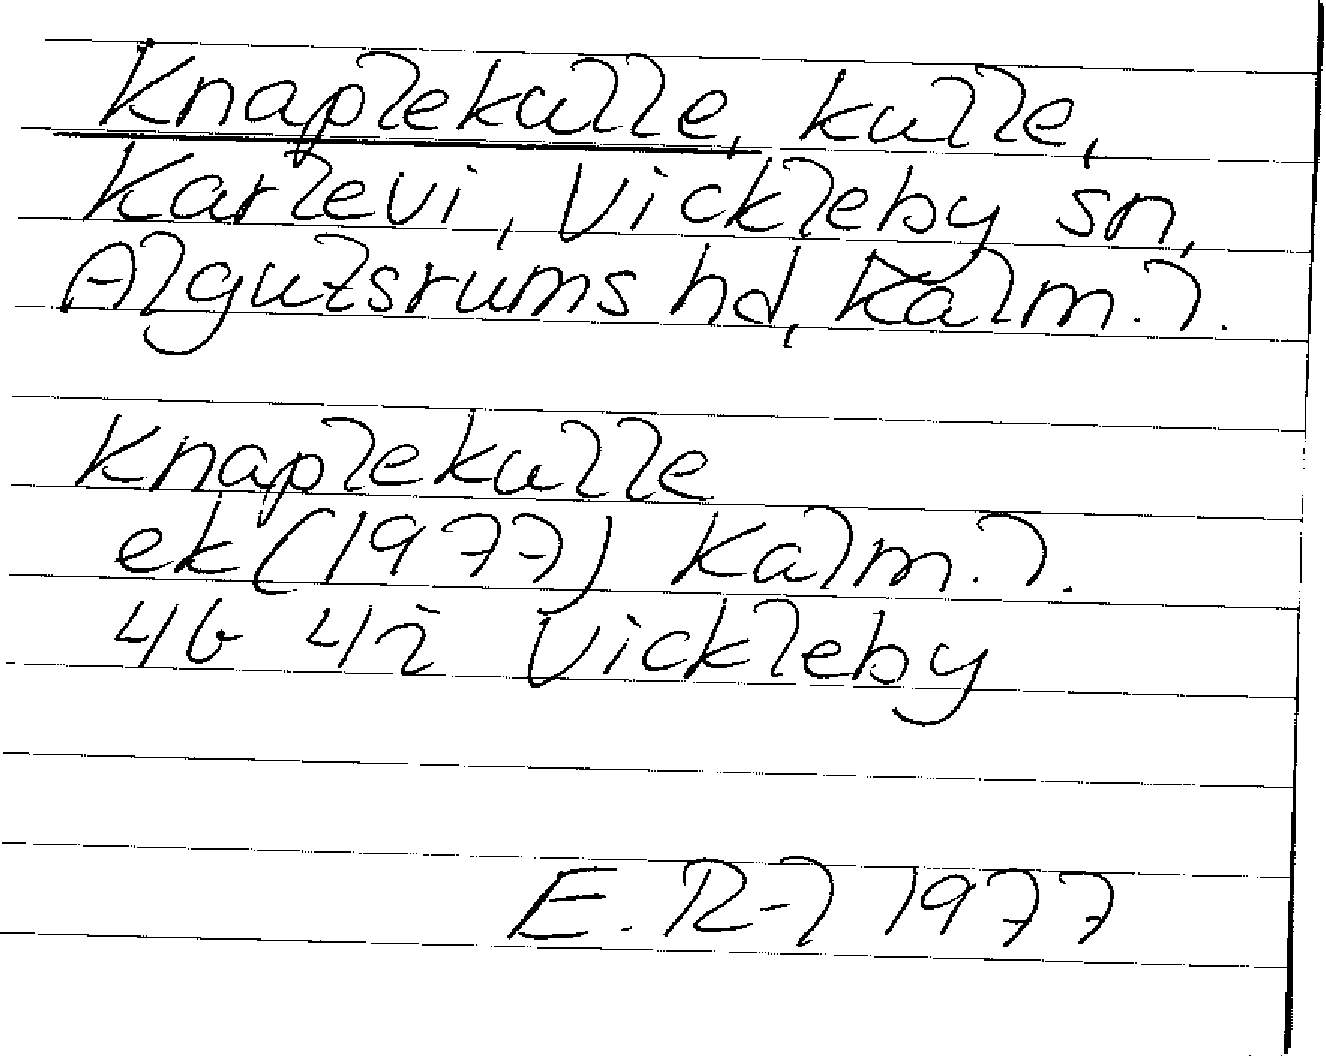 Knaplekulle, kulle,
Karlevi, Vickleby sn,
Algutsrums hd, Kalm. l.
Knaplekulle
ek (1977) Kalm. l.
4G 4i Vickleby
E. R-l 1977